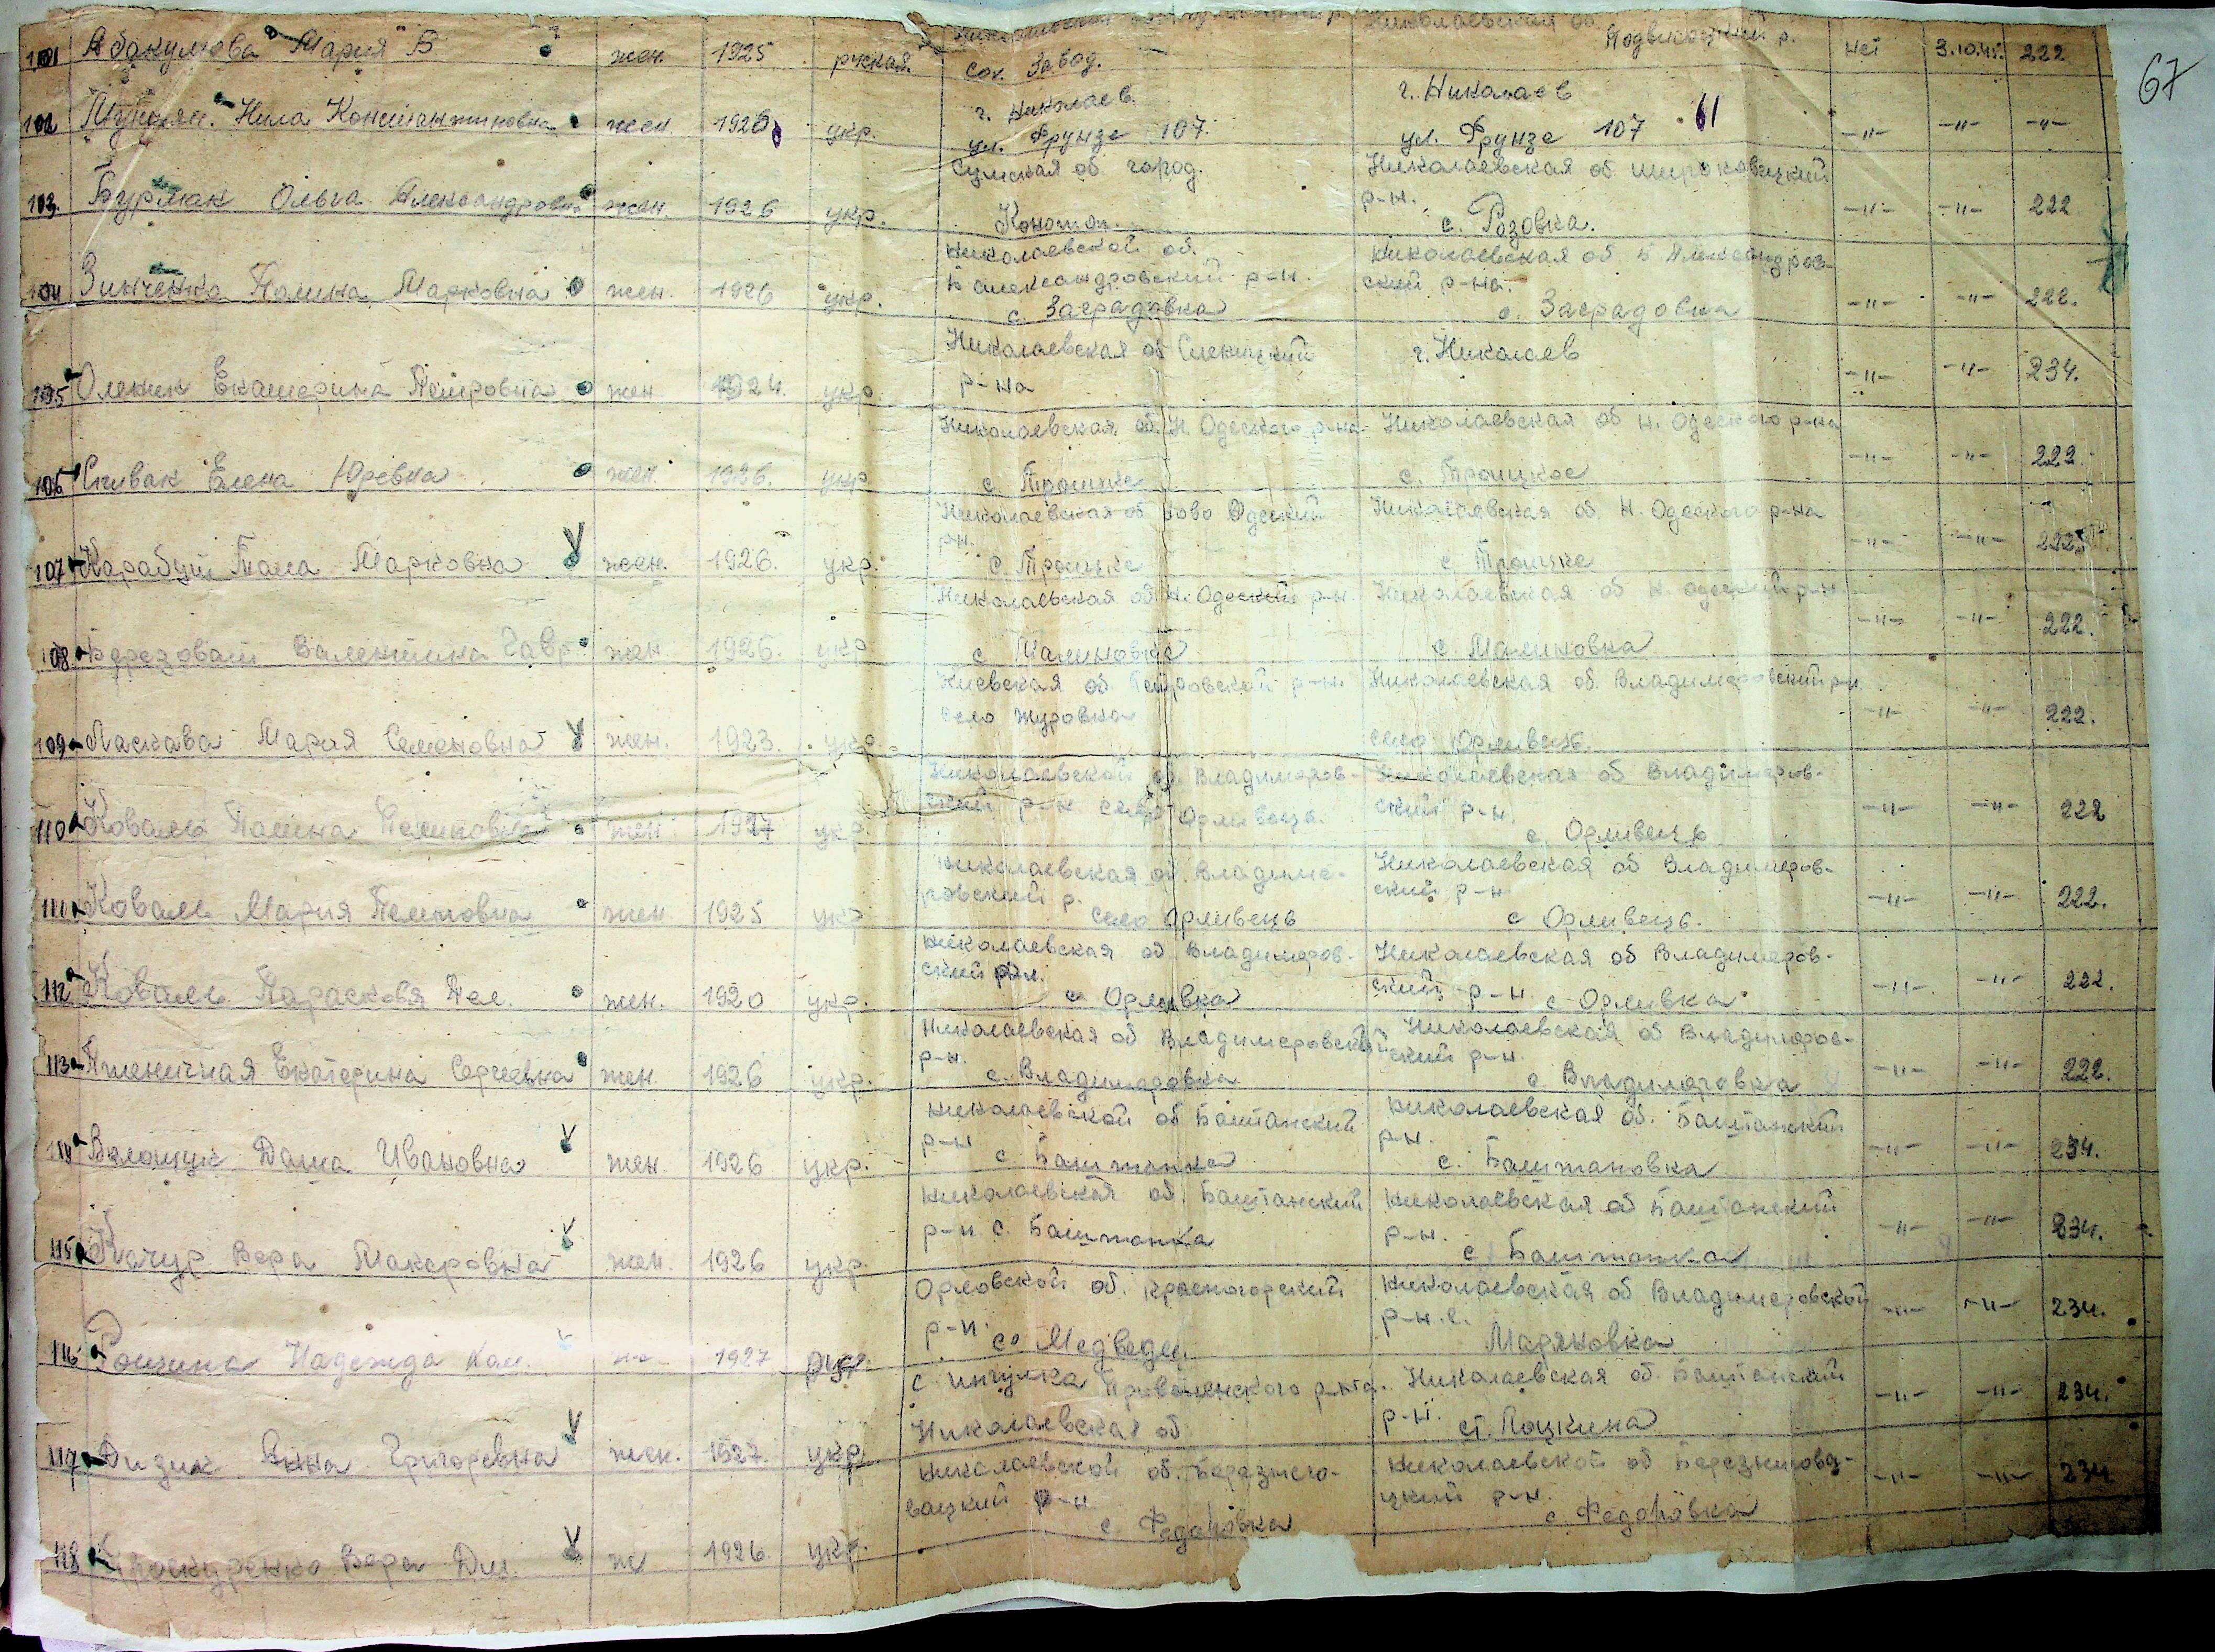 67
101 Абакумова Мария В жен. 1925 рускал. сов. Завод. Николаевская об. Подвисоцкий р. нет 3.10.45. 222
102 Нила Константиновна жен. 1926 укр. г. Николаев. г. Николаев 61 -"- -"- -"-
ул. Фрунзе 107. ул. Фрунзе 107
103. Бурмак Ольга Александровна жен 1926 укр. Сумская об город. Николаевская об широковский -"- -"- 222
р-н.
Конотоп. с. Розовка.
104 Зинченко Полина Марковна жен. 1926 укр. Николаевской об. Николаевская об Б Александров- -"- -"- 222.
Б александровский р-н. ский р-на.
с. Заградовка с. Заградовка
105 Олейник Екатерина Петровна жен 1924. укр Николаевская об г. Николаев -"- -"- 234.
р-на
106 Спивак Елена Юревна жен. 1926. укр Николаевская об. Н. Одеского р-на Николаевская об Н. Одеского р-на -"- -"- 222
с. Троицке с. Троицкое
107 Карабут Марковна жен. 1926. укр. Николаевская об Ново Одеский Николаевская об. Н. Одеского р-на -"- -"- 222
р-н.
с. Троицке с. Троицке
108 Валентина Гавр жен 1926. укр Николаевская об Н. Одеский р-н Николаевская об Н. одеский р-н -"- -"- 222.
с Малиновка с. Малиновка
109 Ласкава Мария Семеновна жен. 1923. укр. Киевская об Петровский р-н. Николаевская об. Владимеровский р-н -"- -"- 222.
село Журовка
село Орливець
110 Коваль Полина жен 1927 укр. Николаевской об. Владимеров- Николаевская об Владимеров- -"- -"- 222
ский р-н село Орливець. ский р-н.
с. Орливець
111 Коваль Мария жен. 1925 укр Николаевская об. Владиме- Николаевская об Владимеров- -"- -"- 222.
ровский р. ский р-н
село Орливець с Орливець.
112 Коваль Парасковя Пел. жен. 1920 укр. Николаевская об Владимеров- Николаевская об Владимеров- -"- -"- 222.
ский ский р-н с Орливка
с Орливка
113 Пшеничная Екатерина Сергеевна жен. 1926 укр. Николаевская об Владимеровский Николаевская об Владимеров- -"- -"- 222.
р-н. ский р-н.
с. Владимеровка с. Владимеровка
114 Волощук Даша Ивановна жен. 1926 укр. Николаевской об Баштанский Николаевская об. Баштанский -"- -"- 234.
р-н р-н.
с. Баштанка с. Баштановка
115 Качур Вера Макаровна жен. 1926 укр. Николаевская об. Баштанский Николаевская об Баштанский -"- -"- 234.
р-н с. Баштанка р-н.
с. Баштанка
116 Надежда 1927 рус. Орловской об. Красногорский Николаевская об Владимеровской -"- -"- 234.
р-н. р-н. с.
с. Медведи. Маряновка
117 Дидик Анна Григоревна жен. 1927. укр. с Ингулка Привольненского р-на. Николаевская об. Баштанский -"- -"- 234.
Николаевская об р-н. ст. Лоцкина
118 Проскуренко Вера Дм. ж 1926. укр. Николаевской об. Березнего- Николаевской об Березнегова- -"- -"- 234
вацкий р-н цкий р-н.
с. Федоровка с. Федоровка